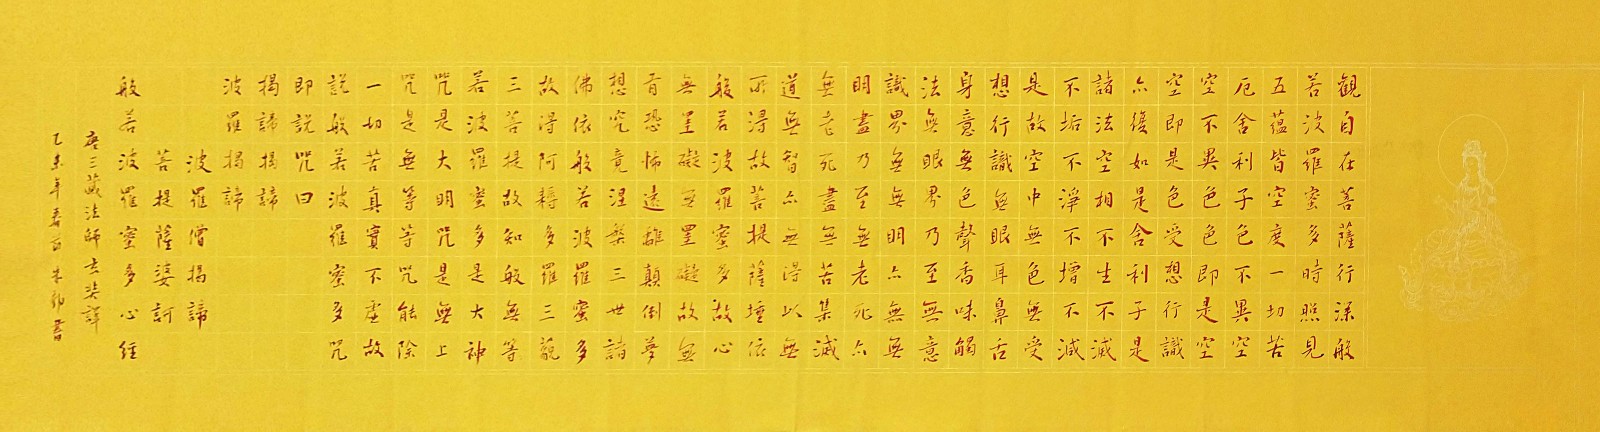 觀自在菩薩行深般
若波羅蜜多時照見
五蘊皆空度一切苦
厄舍利子色不異空
空不異色色即是空
空即是色受想行識
亦復如是舍利子是
諸法空相不生不滅
不垢不淨不增不減
是故空中無色無受
想行識無眼耳鼻舌
身意無色聲香味觸
法無眼界乃至無意
識界無無明亦無無
明盡乃至無老死亦
無老死盡無苦集滅
道無智亦無得以無
所得故菩提薩埵依
般若波羅蜜多故心
無罣礙無罣礙故無
有恐怖遠離顛倒夢
想究竟涅槃三世諸
佛依般若波羅蜜多
故得阿耨多羅三藐
三菩提故知般無等
若波羅蜜多是大神
咒是大明咒是無上
咒是無等等咒能除
一切苦真實不虛故
說般若波羅蜜多咒
即說咒曰
揭諦揭諦
波羅揭諦
波羅僧揭諦
菩提薩婆訶
般若波羅蜜多心經
唐三藏法師玄奘譯
乙未年春書